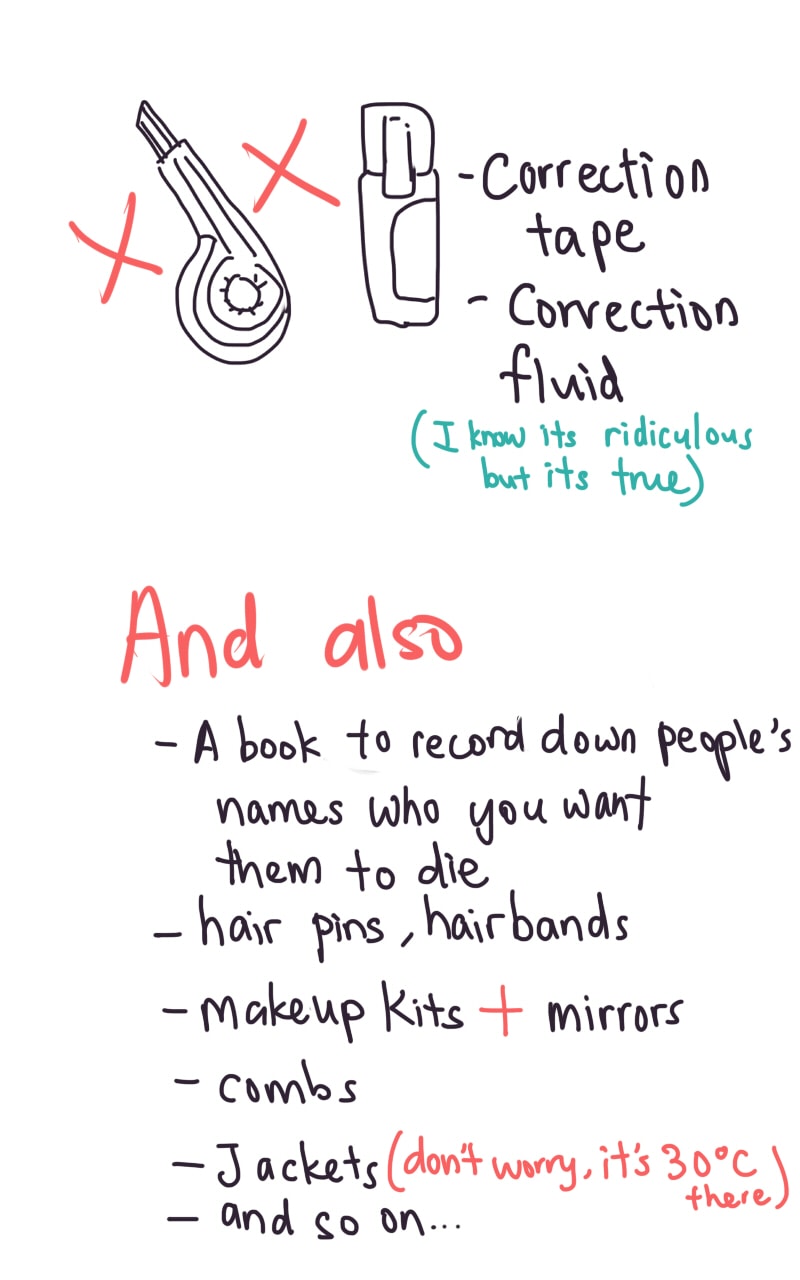 - Correction
tape
- Correction
fluid
(I know its ridiculous
but its true)
And also
- A book to record down people's
names who you want
them to die
- hair pins, hairbands
- Makeup Kits + mirrors
- combs
- Jackets (don't worry, it's 30°C
there)
- and so on...